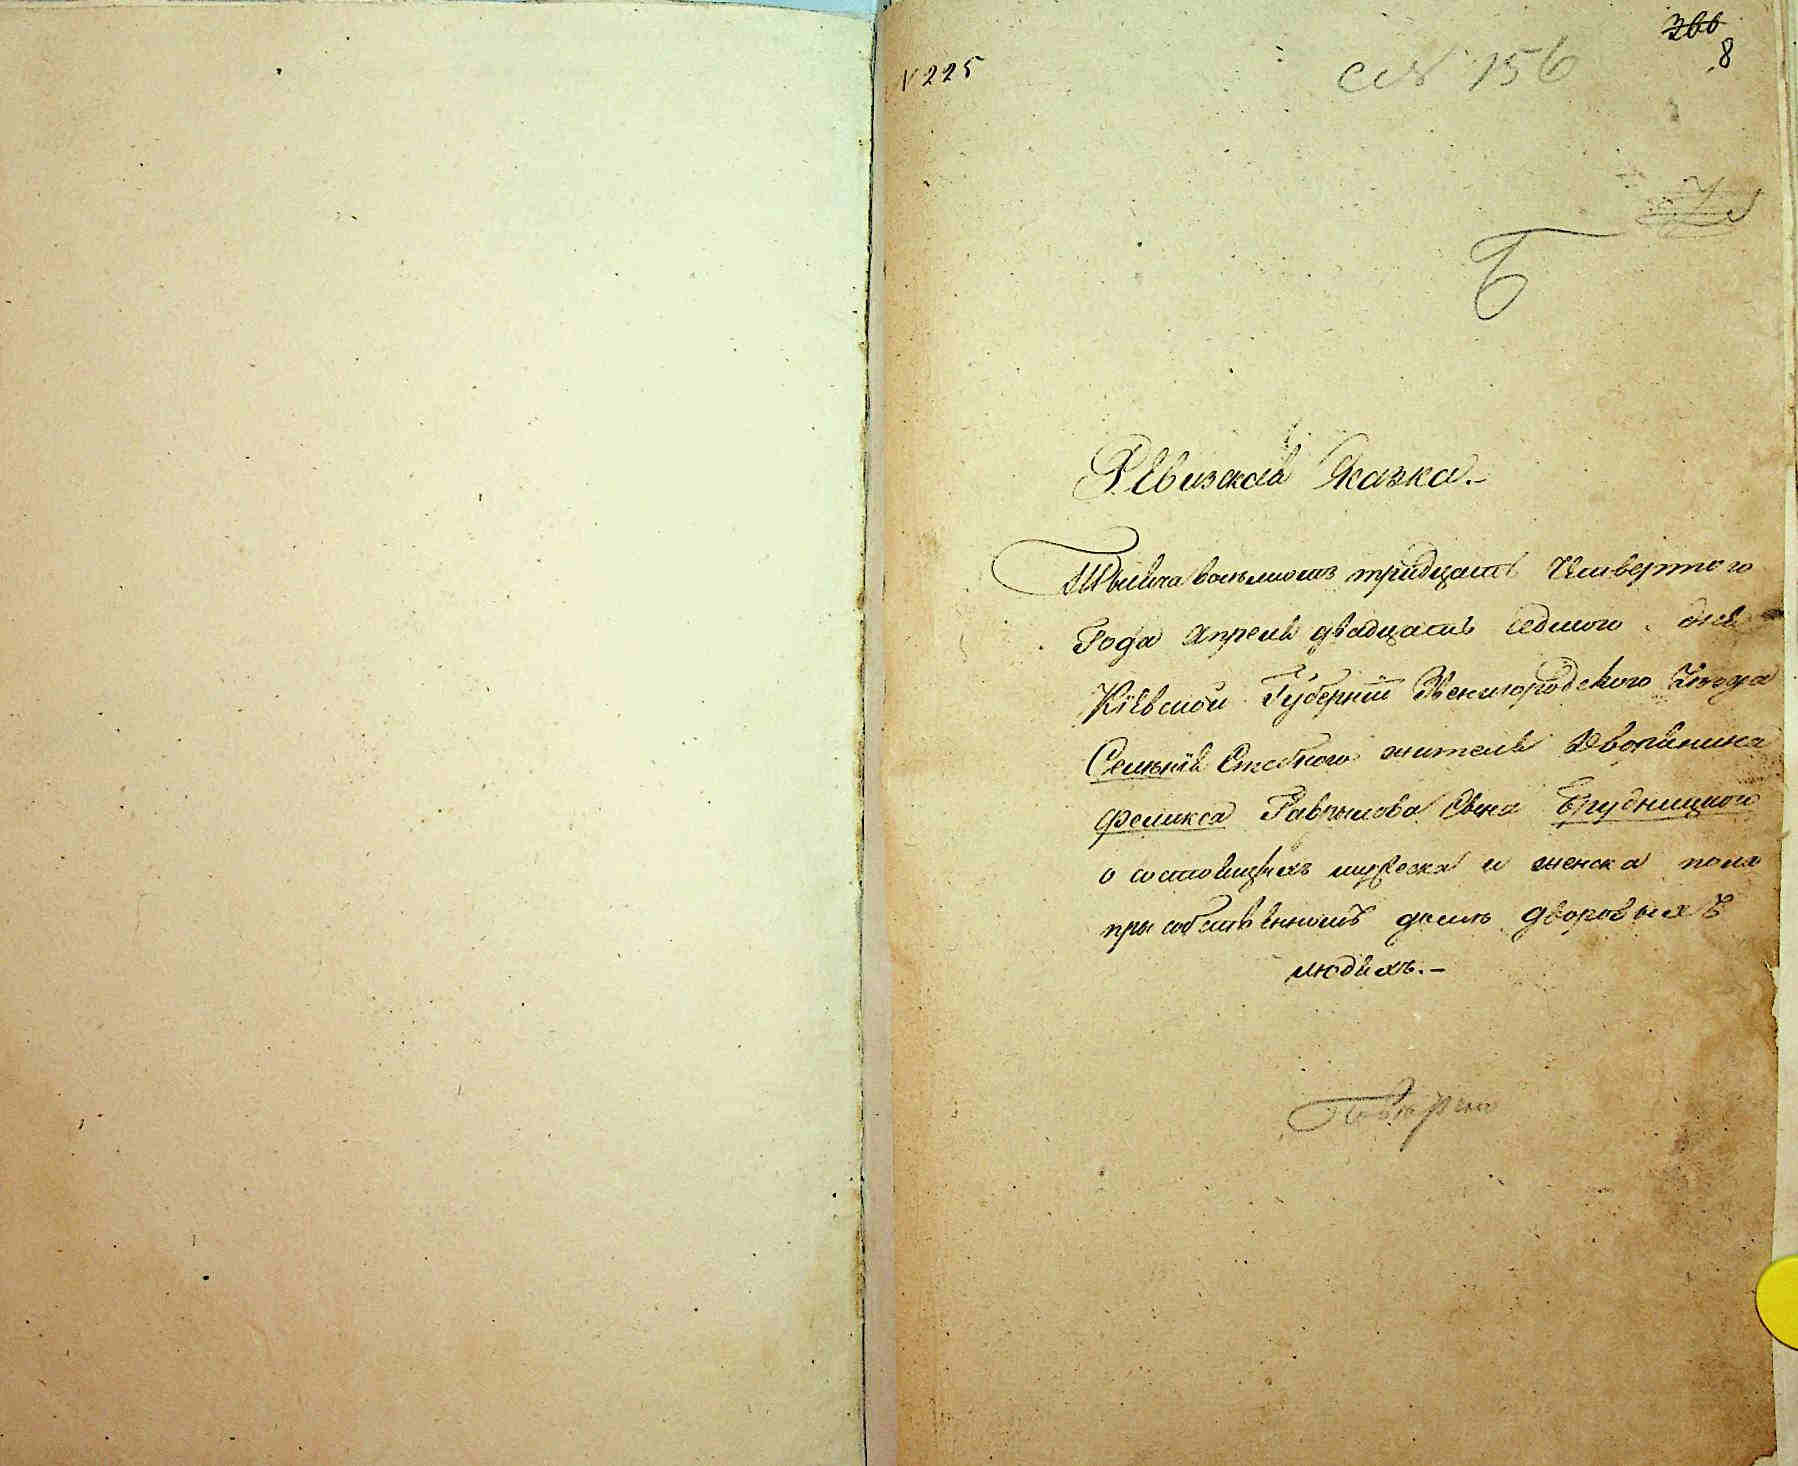 N 225
366
8
№ 156
Б
Ревизская Сказка.-
Тысяча восьмисотъ тридцать Четвертого
Года Апреля двадцать седмого дня
Кіевской Губерніи Звенигородского Уезда
Селенія жителя Дворянина
Феликса Гаврылова Сына Брудницкого
о состоящихъ мужеска и женска пола
при собственномъ доме дворовыхъ
людяхъ.-